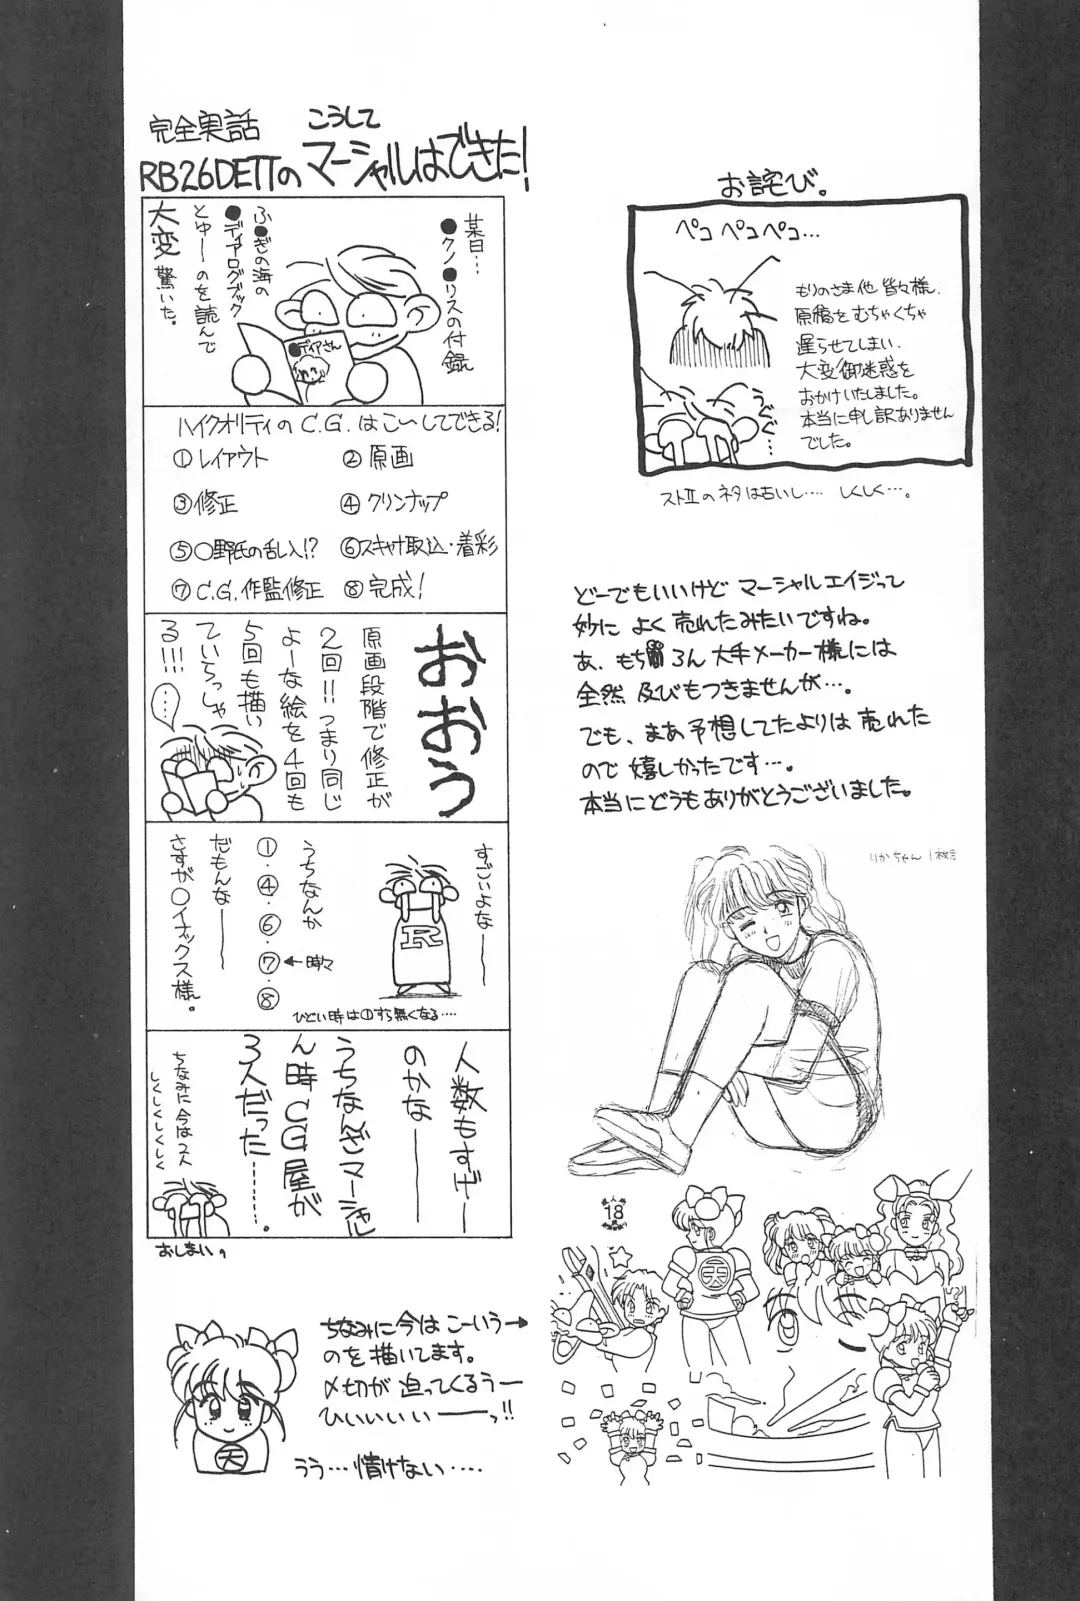 完全実話
こうして
RB26DETTのマーシャルはできた!
某日…
●クノ●リスの付録
ふ●ぎの海の
●ディアログブック
とゆーのを読んで
大変驚いた。
●ディアさん
ハイクオリティのC.G.はこ〜してできる!
①レイアウト
②原画
③修正
④クリンナップ
⑤○野氏の乱入!?
⑥スキャナ取込・着彩
⑦C.G.作監修正
⑧完成!
おおう
原画段階で修正が
2回!!つまり同じ
よーな絵を4回も
5回も描い
ていらっしゃ
る!!!
……
すごいよなー
うちなんか
①・④・⑥・⑦・⑧
←時々
だもんなー
さすが○イナックス様。
R
ひどい時は①すら無くなる….
人数もすげー
のかなー
うちなんざマーシャル
ん時CG屋が
3人だった………。
ちなみに今は2人
しくしくしくしく
おしまい。
ちなみに今はこーいう→
のを描いてます。
〆切が迫ってくるうー
ひぃぃぃぃーっ!!
うう…情けない…..
天
お詫び。
ペコペコペコ…
もりのさま他皆々様、
原稿をむちゃくちゃ
遅らせてしまい、
大変御迷惑を
おかけいたしました。
本当に申し訳ありません
でした。
うぐぐ…
ストⅡのネタは古いし…. しくしく…。
どーでもいいけどマーシャルエイジって
妙によく売れたみたいですね。
あ、もちろん大手メーカー様には
全然及びもつきませんが…。
でも、まあ予想してたよりは売れた
ので嬉しかったです…。
本当にどうもありがとうございました。
りかちゃん
18
天